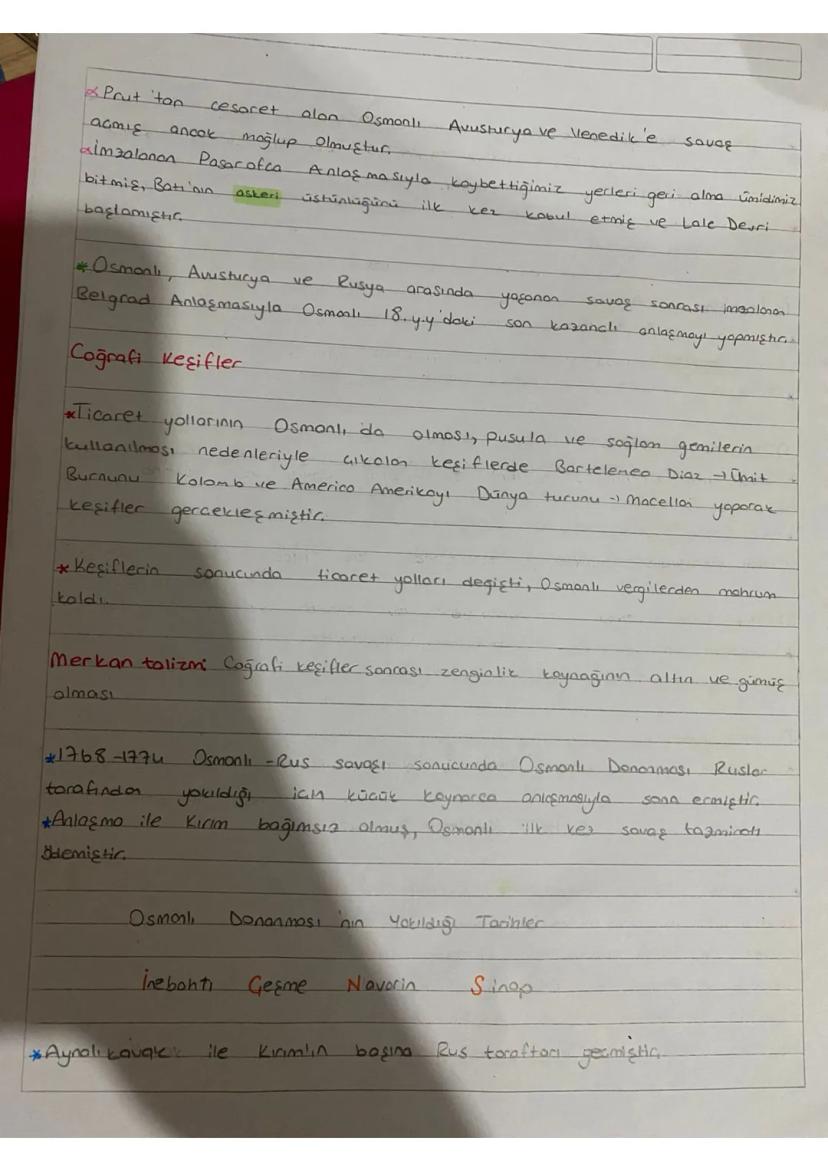 Prut'tan cesaret alan Osmanlı Avusturya ve Venedik'e savaş
açmış ancak mağlup olmuştur.
İmzalanan Pasarofça Anlaşmasıyla kaybettiğimiz yerleri geri alma ümidimiz
bitmiş, Batı'nın askeri üstünlüğünü ilk kez kabul etmiş ve Lale Devri
başlamıştır.
*Osmanlı, Avusturya ve Rusya arasında yaşanan savaş sonrası imzalanan
Belgrad Anlaşmasıyla Osmanlı 18.y.y'daki son kazançlı anlaşmayı yapmıştır.
Coğrafi Keşifler
*Ticaret yollarının Osmanlı'da olması, pusula ve sağlam gemilerin
kullanılması nedenleriyle çıkalan keşiflerde Barteleneo Diaz → Ümit
Burnunu Kolomb ve Americo Amerikayı Dünya turunu → Macellan yaparak
keşifler gerçekleşmiştir.
*Keşiflerin sonucunda ticaret yolları değişti, Osmanlı vergilerden mahrum
kaldı.
Merkan talizmi Coğrafi keşifler sonrası zenginlik kaynağının altın ve gümüş
olması
*1768-1774 Osmanlı-Rus savaşı sonucunda Osmanlı Donanması Ruslar
tarafından yakıldığı için küçük kaynarca anlaşmasıyla sona ermiştir.
*Anlaşma ile Kırım bağımsız olmuş, Osmanlı ilk kez savaş tazminatı
ödemiştir.
Osmanlı Donanması'nın Yakıldığı Tarihler
İnebahtı Çeşme Navarin Sinop
*Aynalıkavak ile Kırım'ın başına Rus taraftarı geçmiştir.